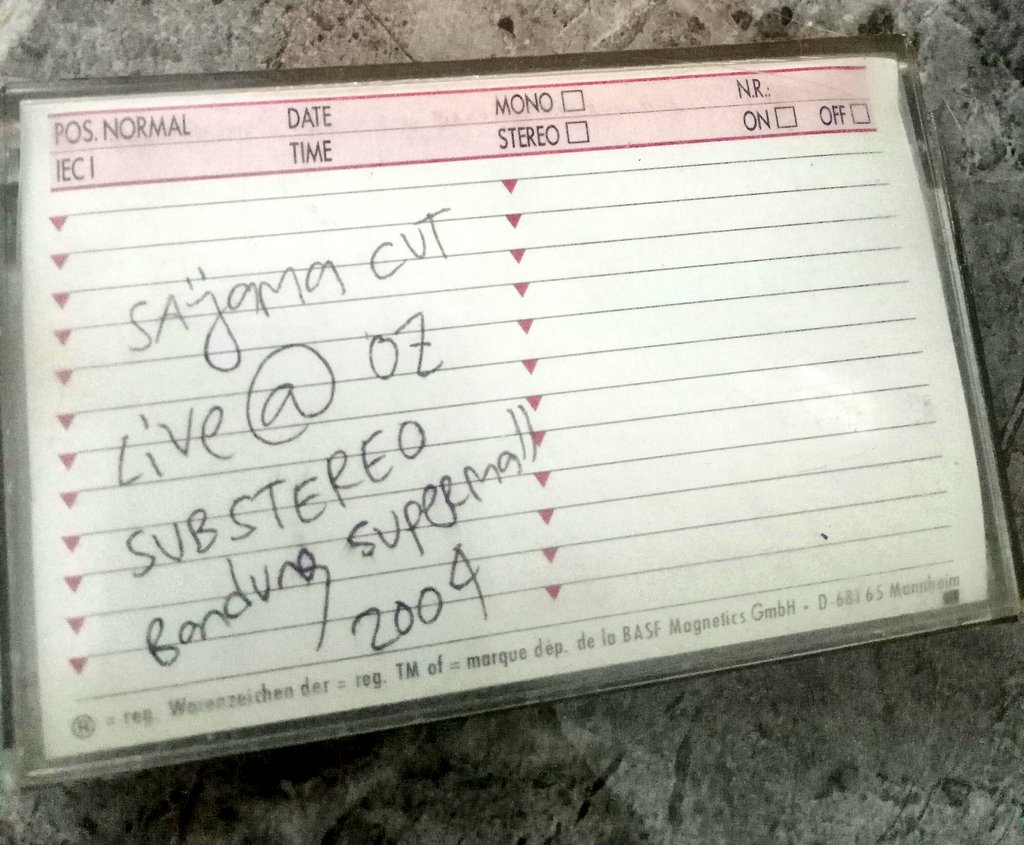 POS. NORMAL DATE MONO N.R.:
IEC I TIME STEREO ON OFF
SAÿama CUT
Live @ OZ
SUBSTEREO
Bandung supermall
2004
® = reg. Warenzeichen der = reg. TM of = marque dép. de la BASF Magnetics GmbH - D 68165 Mannheim